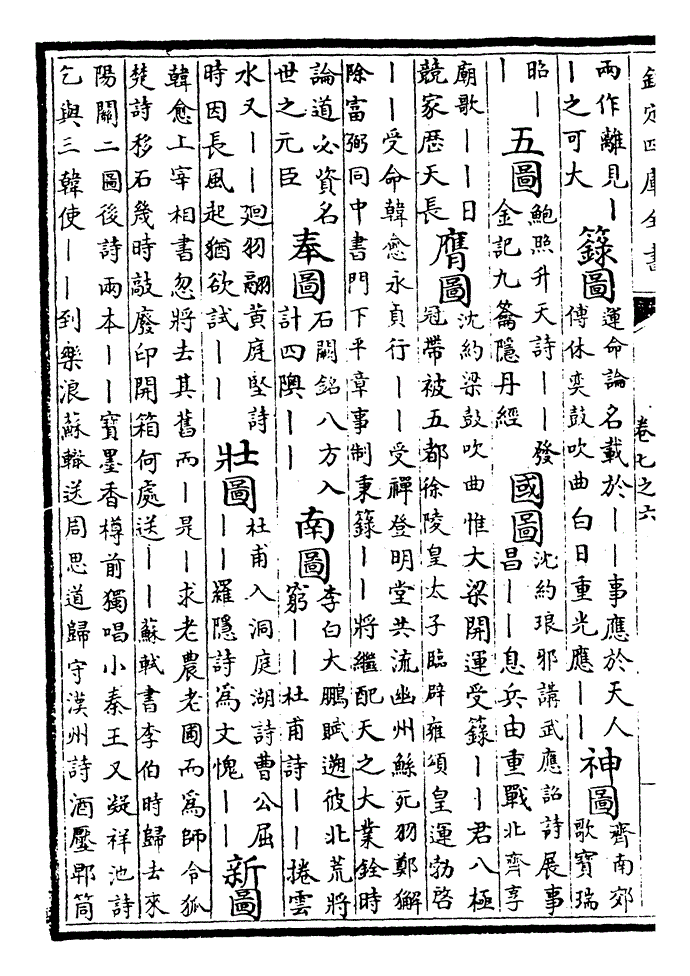 欽定四庫全書
卷七之六
兩作離見丨
丨之可大
籙圖
運命論名載於丨丨事應於天人
傅休奕鼓吹曲白日重光應丨丨
神圖
齊南郊
歌寳瑞
昭丨
丨
五圖
鮑照升天詩丨丨發
金記九籥隱丹經
國圖
沈約琅邪講武應詔詩展事
昌丨丨息兵由重戰北齊享
廟歌丨丨日
競家歴天長
膺圖
沈約梁鼓吹曲惟大梁開運受籙丨丨君八極
冠帶被五都徐陵皇太子臨辟雍頌皇運勃啓
丨丨受命韓愈永貞行丨丨受禪登明堂共流幽州鯀死羽鄭獬
除富弼同中書門下平章事制秉籙丨丨將繼配天之大業銓時
論道必資名
世之元臣
奉圖
石闕銘八方入
計四隩丨丨
南圖
李白大鵬賦邈彼北荒將
窮丨丨杜甫詩丨丨捲雲
水又丨丨廻羽翮黄庭堅詩
時因長風起猶欲試丨丨
壯圖
杜甫入洞庭湖詩曹公屈
丨丨羅隱詩為文愧丨丨
新圖
韓愈上宰相書忽將去其舊而丨是丨求老農老圃而為師令狐
楚詩移石幾時敲廢印開箱何處送丨丨蘇軾書李伯時歸去來
陽關二圖後詩兩本丨丨寳墨香樽前獨唱小秦王又凝祥池詩
乞與三韓使丨丨到樂浪蘇轍送周思道歸守漢州詩酒壓郫筒